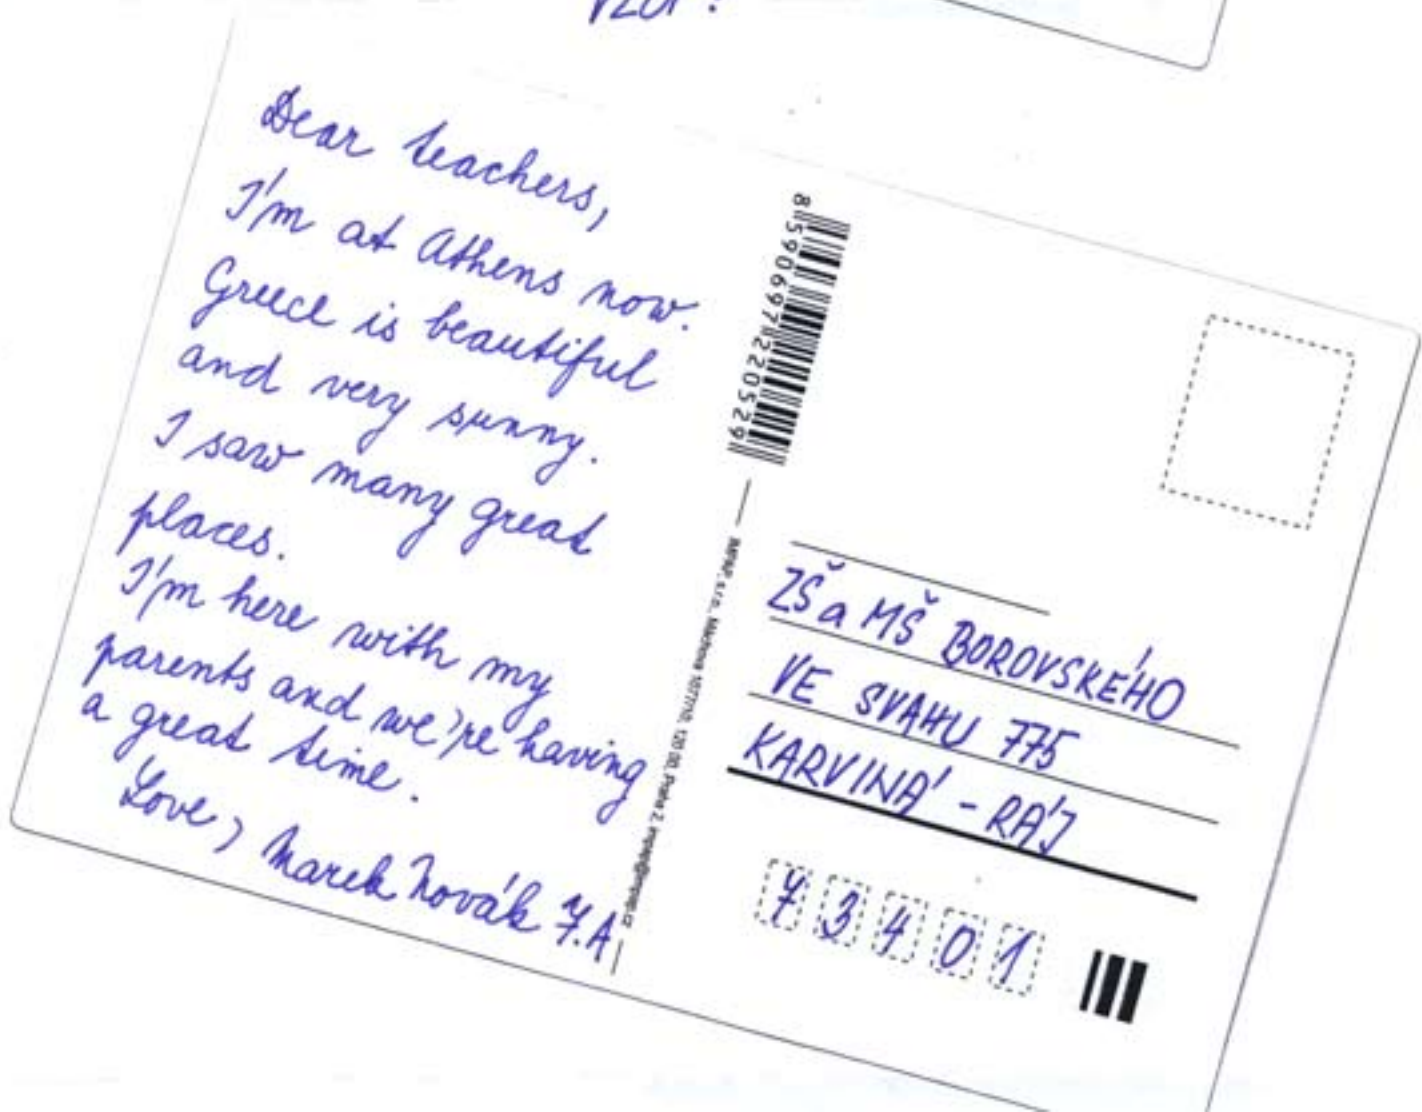 VZOR:
Dear teachers,
I'm at Athens now.
Greece is beautiful
and very sunny.
I saw many great
places.
I'm here with my
parents and we're having
a great time.
Love, Marek Novák 7.A
8590697220529
IMPAP, s.r.o., Máchova 1077/10, 120 00, Praha 2, impap@impap.cz
ZŠ a MŠ BOROVSKÉHO
VE SVAHU 775
KARVINÁ - RÁJ
73401